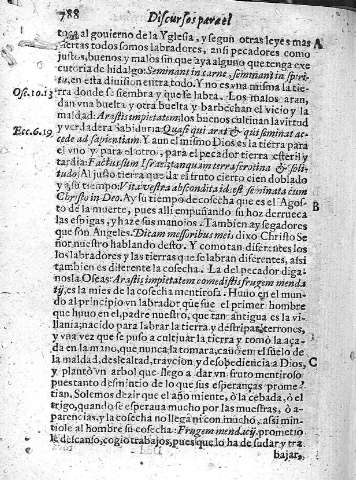 788
Discursos para el
toca al gouierno de la Yglesia, y segun otras leyes mas A
ciertas todos somos labradores, ansi pecadores como
justos, buenos y malos sin que aya alguno que tenga exe
cutoria de hidalgo: Seminant in carne, seminant in spiri-
tu, en esta diuision entra todo. Y no es vna misma la tie-
Ose.10.13 rra donde se siembra y que se labra. Los malos aran,
dan vna buelta y otra buelta y barbechan el vicio y la
maldad: Arastis impietatem, los buenos cultiuan la virtud
Ecc.6.19. y verdadera Sabiduria: Quasi qui arat & qui seminat ac-
cede ad sapientiam. Y aun el mismo Dios es la tierra para
el vno y para el otro, para el pecador tierra esteril y
tardia: Factus sum Israel, tanquam terra serotina & soli-
tudo. Al justo tierra que da el fruto cierto cien doblado
y a su tiempo: Vita vestra abscondita id est seminata cum
Christo in Deo. Ay su tiempo de cosecha que es el Agos- B
to de la muerte, pues alli empuñando su hoz derrueca
las espigas, y haze sus manojos. Tambien ay segadores
que son Angeles. Dicam messoribus meis dixo Christo Se
ñor nuestro hablando desto. Y como tan diferentes los
los labradores y las tierras que se labran diferentes, assi
tambien es diferente la cosecha. La del pecador diga-
nos la Oseas: Arastis impietatem comedistis frugem menda
cij, es la mies de la cosecha mentirosa. Huuo en el mun-
do al principio vn labrador que fue el primer hombre
que huuo en el, padre nuestro, que tan antigua es la vi-
llania; nacido para labrar la tierra y destripar terrones,
y vna vez que se puso a cultiuar la tierra y tomò la aça-
da en la mano, que nunca la tomara, cauò en el suelo de
la maldad, deslealtad, traycion y desobediencia a Dios, C
y plantò vn arbol que llego a dar vn fruto mentiroso
pues tanto desmintio de lo que sus esperanças prome-
tian. Solemos dezir que el año miente, ò la cebada, ò el
trigo, quando se esperaua mucho por las muestras, ò a-
parencias, y la cosecha no llega ni con mucho, assi min-
tiole al hombre su cosecha: Frugem mendacij. prometio
le descanso, cogio trabajos, pues que lo ha de sudar y tra
bajar,